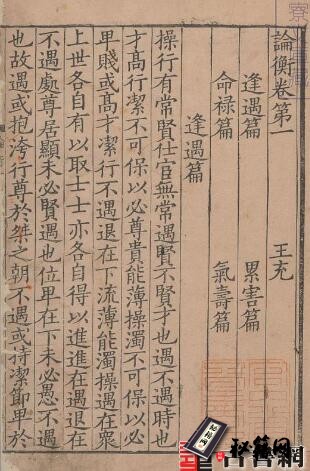 論衡卷第一　王充
逢遇篇　累害篇
命祿篇　氣壽篇
逢遇篇
操行有常賢仕宦無常遇賢不賢才也遇不遇時也
才高行潔不可保以必尊貴能薄操濁不可保以必
卑賤或高才潔行不遇退在下流薄能濁操遇在衆
上世各自有以取士士亦各自得以進進在遇退在
不遇處尊居顯未必賢遇也位卑在下未必愚不遇
也故遇或抱洿行尊於桀之朝不遇或持潔節卑於
秘籍网